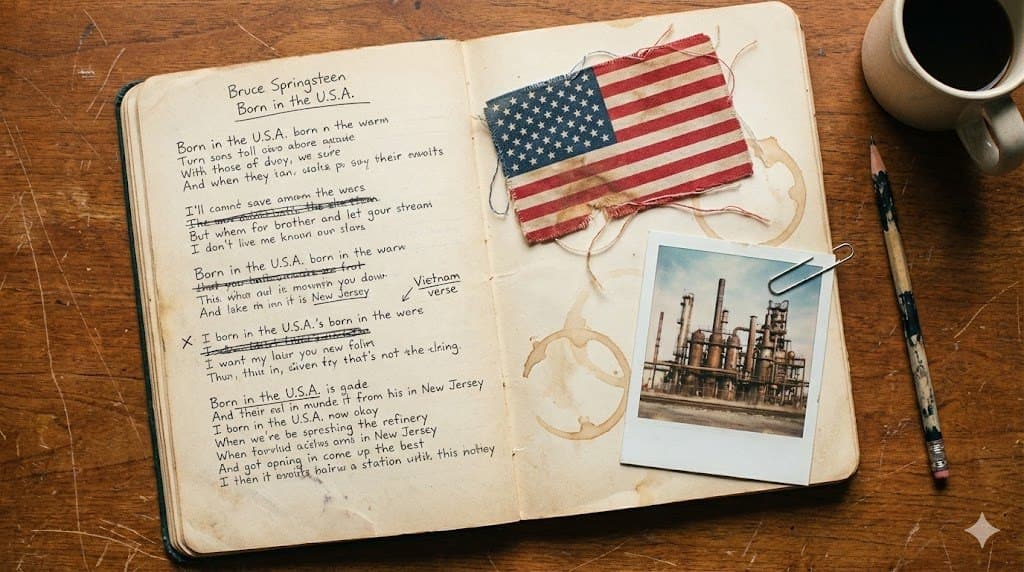 Bruce Springsteen
Born in the U.S.A.
Born in the U.S.A. born n the warm
Turn sons toll above
With those of duvy, we sure
And when they ian, say their
I'll camnt save the wars
But whem for brother and let your stream
I don't live me knoun our stars
Born in the U.S.A. born in the warw
This you down
And lake it is New Jersey
Vietnam
verse
X I born in the U.S.A.'s born in the wore
I want my laur you new folin
Thun, thut in, given try that's not the clning.
Born in the U.S.A. is gade
And Their in munde it from his in New Jersey
I born in the U.S.A. now okay
When we're be spresting the refinery
When in New Jersey
And got opning in come up the best
I then it a station this nottey